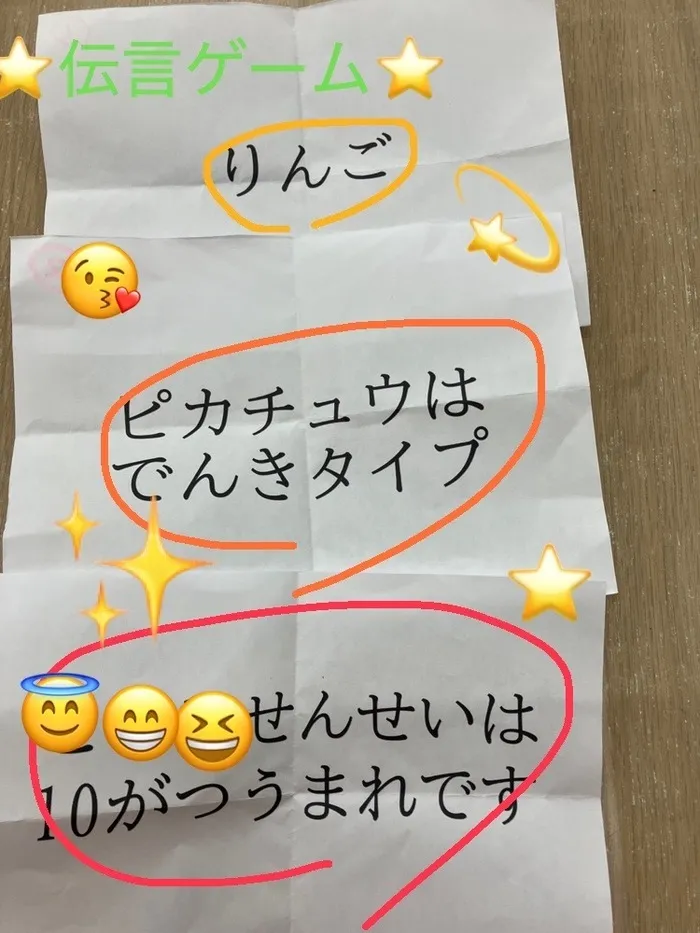 伝言ゲーム
りんご
ピカチュウは
でんきタイプ
せんせいは
10がつうまれです